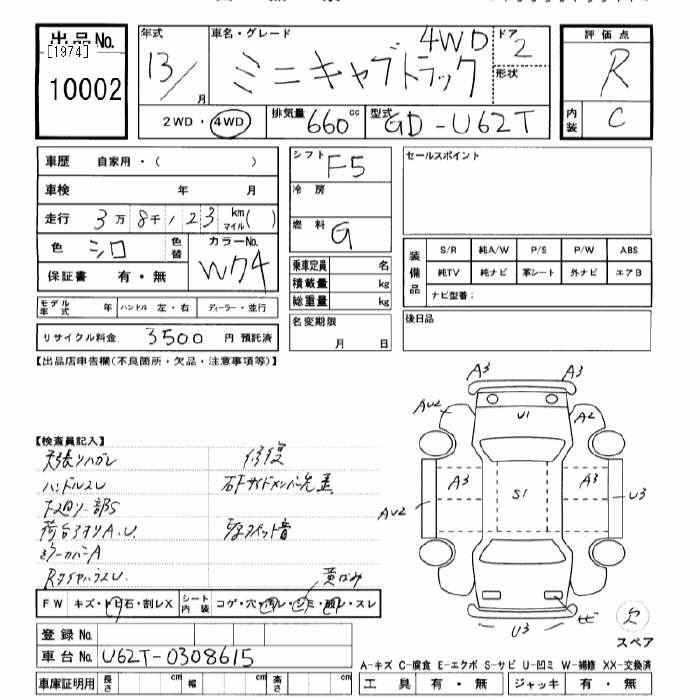 出品No.
[1974]
10002
年式 13/ 月
車名・グレード ミニキャブトラック 4WD
ドア 2
形状
2WD・4WD
排気量 660 cc
型式 GD-U62T
評価点 R
内装 C
車歴 自家用・( )
車検 年 月
走行 3万8千123 km マイル( )
色 シロ 色替
カラーNo. W74
保証書 有・無
モデル年式 年 ハンドル 左・右 ディーラー・並行
リサイクル料金 3500 円 預託済
シフト F5
冷房
燃料 G
乗車定員 名
積載量 kg
総重量 kg
名変期限 月 日
セールスポイント
装備品 S/R 純A/W P/S P/W ABS
純TV 純ナビ 革シート 外ナビ エアB
ナビ型番:
後日品
【出品店申告欄(不良箇所・欠品・注意事項等)】
【検査員記入】
天張りハガレ 修復
ハンドルスレ 右Fサイドメンバー先歪
下廻り一部S
荷台アオリA.U.
ミラーカバーA
黄ばみ
FW キズ・トビ石・割レX シート内装 コゲ・穴・汚レ・シミ・破レ・スレ
登録No.
車台No. U62T-0308615
車庫証明用 長さ cm 幅 cm 高さ cm
A3 A3
AU2 U1 A2
A3 S1 A3
AU2 U3
U3
欠
スペア
A-キズ C-腐食 E-エクボ S-サビ U-凹ミ W-補修 XX-交換済
工具 有・無 ジャッキ 有・無